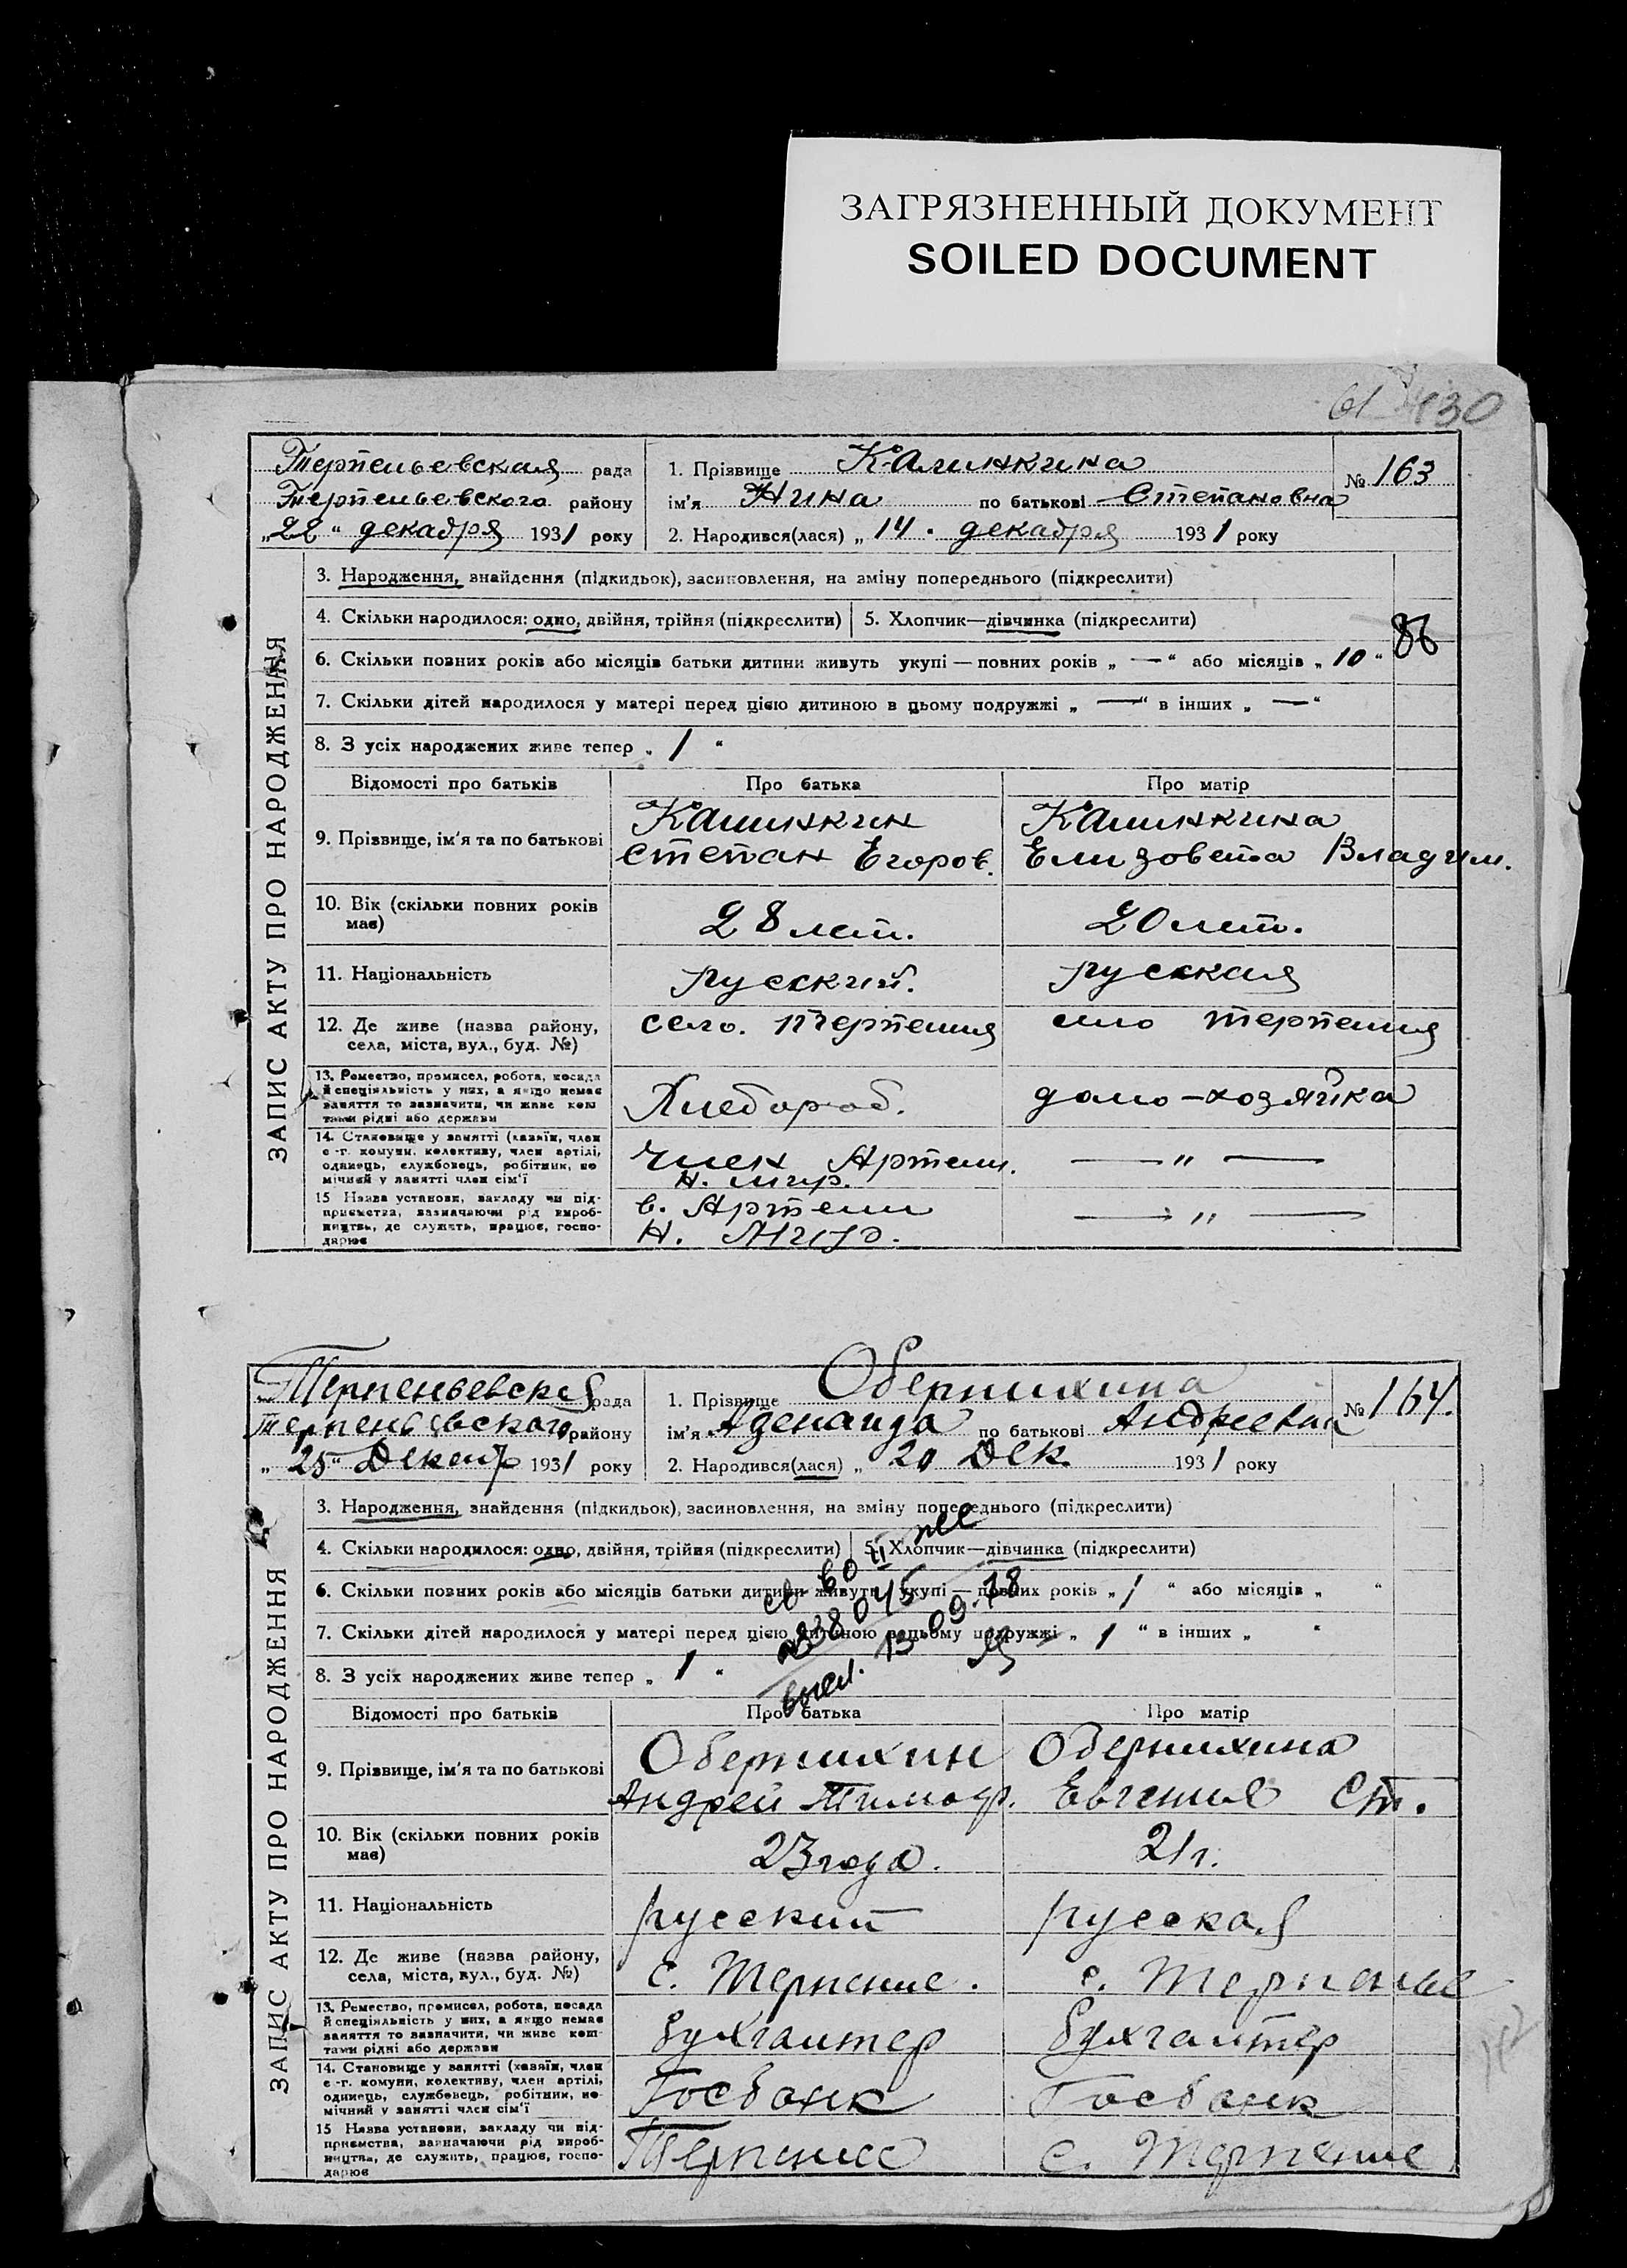 ЗАГРЯЗНЕННЫЙ ДОКУМЕНТ
SOILED DOCUMENT
61 430
Терпеньевская рада
Терпеньевского району
„22“ декабря 1931 року
1. Прізвище Калинкина
ім'я Нина по батькові Степановна
№ 163
2. Народився(лася) „14. декабря 1931 року
ЗАПИС АКТУ ПРО НАРОДЖЕННЯ
3. Народження, знайдення (підкидьок), засиновлення, на зміну попереднього (підкреслити)
4. Скільки народилося: одно, двійня, трійня (підкреслити) 5. Хлопчик—дівчинка (підкреслити)
86
6. Скільки повних років або місяців батьки дитини живуть укупі — повних років „ — “ або місяців „ 10 “
7. Скільки дітей народилося у матері перед цією дитиною в цьому подружжі „ — “ в інших „ — “
8. З усіх народжених живе тепер „ 1 “
Відомості про батьків Про батька Про матір
9. Прізвище, ім'я та по батькові
Калинкин
Степан Егоров.
Калинкина
Елизовета Владим.
10. Вік (скільки повних років
має)
28 лет. 20 лет.
11. Національність русский. русская
12. Де живе (назва району,
села, міста, вул., буд. №)
село. Терпения село Терпения
13. Ремество, промисел, робота, посада
й спеціяльність у них, а якщо немає
заняття то зазначити, чи живе кош
тами рідні або держави
Хлебороб. домо-хозяйка
14. Становище у занятті (хазяїн, член
с.-г. комуни, колективу, член артілі,
одинець, службовець, робітник, по
мічний у занятті член сім'ї
член Артели.
Н. Мир.
— „ —
15 Назва установи, закладу чи під-
приємства, зазначаючи рід вироб-
ництва, де служить, працює, госпо-
дарює
в. Артели
Н. Мир.
— „ —
Терпеньевская рада
Терпеньевского району
„25“ Декабр 1931 року
1. Прізвище Обернихина
ім'я Зенаида по батькові Андреевна
№ 164.
2. Народився(лася) „ 20 Дек. 1931 року
ЗАПИС АКТУ ПРО НАРОДЖЕННЯ
3. Народження, знайдення (підкидьок), засиновлення, на зміну попереднього (підкреслити)
4. Скільки народилося: одно, двійня, трійня (підкреслити) 5. Хлопчик—дівчинка (підкреслити)
6. Скільки повних років або місяців батьки дитини живуть укупі — повних років „ 1 “ або місяців „ “
7. Скільки дітей народилося у матері перед цією дитиною в цьому подружжі „ 1 “ в інших „ “
8. З усіх народжених живе тепер „ 1 “
13.09.78
Відомості про батьків Про батька Про матір
9. Прізвище, ім'я та по батькові
Обернихин
Андрей Тимоф.
Обернихина
Евгения Ст.
10. Вік (скільки повних років
має)
23 года. 21 г.
11. Національність русский русская
12. Де живе (назва району,
села, міста, вул., буд. №)
с. Терпение. с. Терпенье
13. Ремество, промисел, робота, посада
й спеціяльність у них, а якщо немає
заняття то зазначити, чи живе кош-
тами рідні або держави
бухгалтер бухгалтер
14. Становище у занятті (хазяїн, член
с.-г. комуни, колективу, член артілі,
одинець, службовець, робітник, по-
мічний у занятті член сім'ї
Госбанк Госбанк
15 Назва установи, закладу чи під-
приємства, зазначаючи рід вироб-
ництва, де служить, працює, госпо-
дарює
Терпение с. Терпение